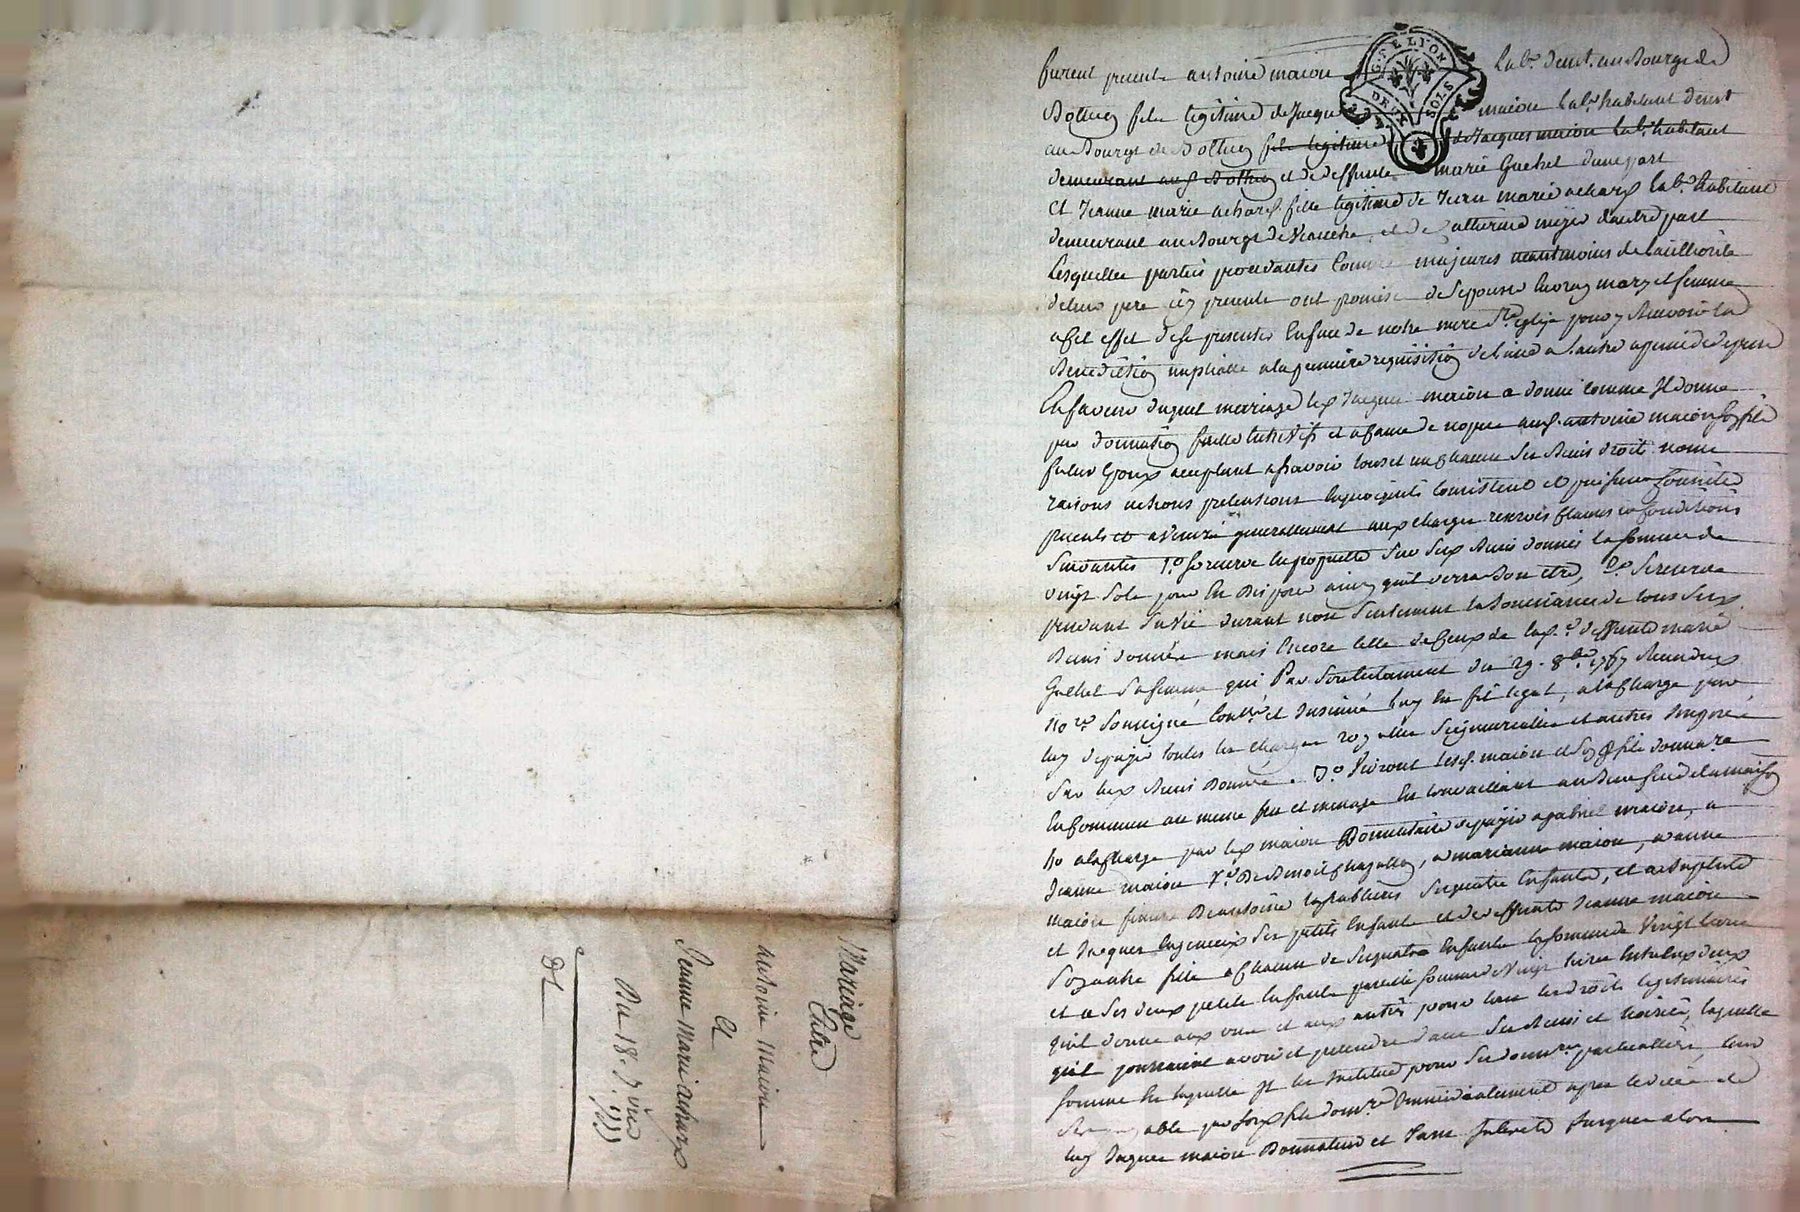 Mariage
Entre
Antoine Maion
Et
Jeanne Marie acharx
Du 18.
furent presents antoine maion lab.r demt. au Bourg de
Bothieu fils legitime de Jacques maion lab.r habitant demt
au Bourg de Bothieu fils legitime de Jacques maion lab.r habitant
demeurant aud. Bothieu et de deffunte marie Guehel d'une part
Et Jeanne marie acharx fille legitime de Jean marie acharx lab.r habitant
demeurant au Bourg de et de Catherine d'autre part
Lesquelles parties procedantes comme majeures neantmoins de l'authorité
de leur pere icy presents ont promis de se epouser en vray mary et femme
a cet effet de se presenter en face de notre mere Ste. eglise pour y recevoir la
Benediction nuptialle a la premiere requisition de l'une a l'autre a peine de depens
En faveur duquel mariage led. Jacques maion a donné comme Il donne
par donnation faite entre vifs et a cause de nopces aud. antoine maion son fils
futur Epoux acceptant a scavoir tous et un chacun ses Biens droits noms
raisons actions pretentions en quoy qu'ils consistent et puissent consister
presents et a venir generallement aux charges reserves clauses et conditions
suivantes 1.o se reserve lad. sur sesd. Biens donnés la somme de
vingt sols pour en disposer ainsy qu'il verra bon etre, 2.o se reserve
pendant sa vie durant non seulement la Jouissance de tous sesd.
Biens donnés mais Encore celle de Ceux de lad. deffunte marie
Guehel sa femme qui Par son testament du 29. 8bre 1767 receu dud.
no.re soussigné Contlé. et Insinué luy en fit legat, a la charge par
luy de payer toutes les charges royalles seigneurialles et autres Imposées
sur lesd. Biens Donnés. 3.o vivront lesd. maion et son fils donnat.re
En commun au meme feu et menage En travaillant au Bien fait de la maison
4.o a la charge par led. maion Donnataire de payer a gabriel maion, a
Jeanne maion V.e de Benoit Chazalley, a marianne maion, a anne
maion femme de antoine ses quatre Enfants, et a
et Jacques ses petits Enfants et de deffunte Jeanne maion
son autre fille a chacun de ses quatre Enfants la somme de Vingt livres
et a ses deux petits Enfants pareille somme de Vingt livres entre Eux deux
qu'il donne aux uns et aux autres pour tous les droits legitimaires
qu'ils pourroient avoir et pretendre dans ses Biens et hoirie, laquelle
somme En laquelle Il les Institue pour ses donn.res particulliers, leur
sera payable par sond. fils donn.re Immediatement apres le deces de
luy Jacques maion Donnateur et sans Interets Jusques alors